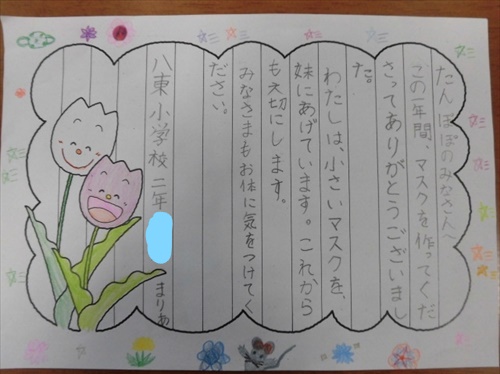 たんぽぽのみなさんへ
この一年間、マスクを作ってくだ
さってありがとうございまし
た。
わたしは、小さいマスクを、
妹にあげています。これから
も大切にします。
みなさまもお体に気をつけてく
ださい。
八東小学校二年
まりあ